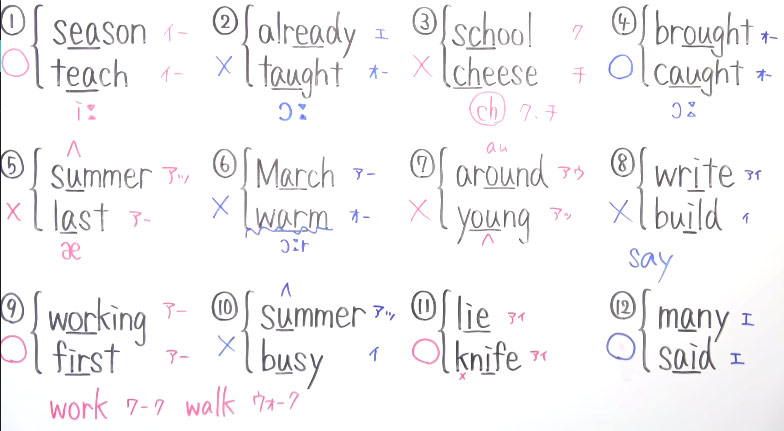 ① season イー ② already エ ③ school ク ④ brought オー
○ teach イー × taught オー × cheese チ ○ caught オー
iː ɔː ch ク.チ ɔː
ʌ au
⑤ summer アッ ⑥ March アー ⑦ around アウ ⑧ write アイ
× last アー × warm オー × young アッ × build イ
æ ɔːr ʌ say
ʌ
⑨ working アー ⑩ summer アッ ⑪ lie アイ ⑫ many エ
○ first アー × busy イ ○ knife アイ ○ said エ
×
work ワーク walk ウォーク